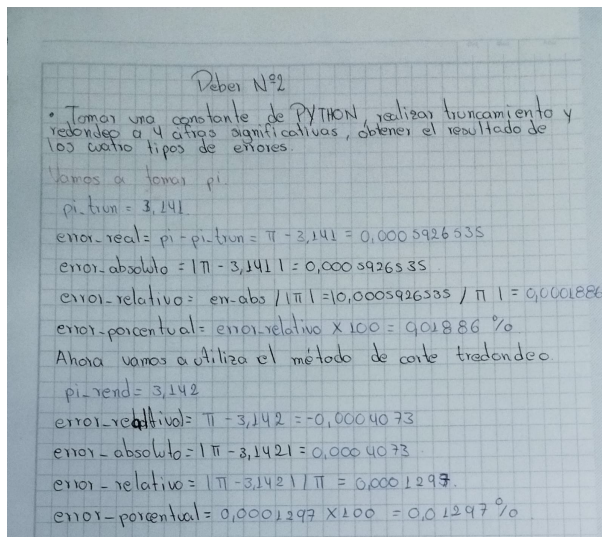 Deber Nº2
• Tomar una constante de PYTHON, realizar truncamiento y
redondeo a 4 cifras significativas, obtener el resultado de
los cuatro tipos de errores.
Vamos a tomar pi.
pi_trun = 3,141
error_real = pi - pi_trun = π - 3,141 = 0,0005926535
error_absoluto = |π - 3,141| = 0,0005926535
error_relativo = err_abs / |π| = |0,0005926535 / π| = 0,0001886
error_porcentual = error_relativo × 100 = 0,01886 %
Ahora vamos a utiliza el método de corte tredondeo.
pi_rend = 3,142
= π - 3,142 = -0,0004073
error_absoluto = |π - 3,142| = 0,0004073
error_relativo = |π - 3,142| / π = 0,0001297.
error_porcentual = 0,0001297 × 100 = 0,01297 %